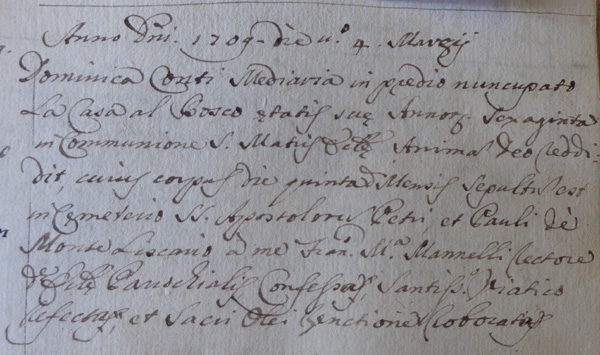 Anno Dni. 1709 - die v.o 4. Marzij
Dominica Conti Mediaria in predio nuncupato
La Casa al Bosco ętatis suę Annor. Sexaginta
in Communione S. Matris Eclę Animā deo reddi-
dit, cuius corpus die quinta d. Mensis sepultū est
in Cęmeterio SS. Apostolorū Petri, et Pauli dè
Monte Liscario à me Fran. M.a Mannelli Rectore
d. Eclę Parochialis Confessa, Santiss.o Viatico
refecta, et Sacri Olei Unctione roborata